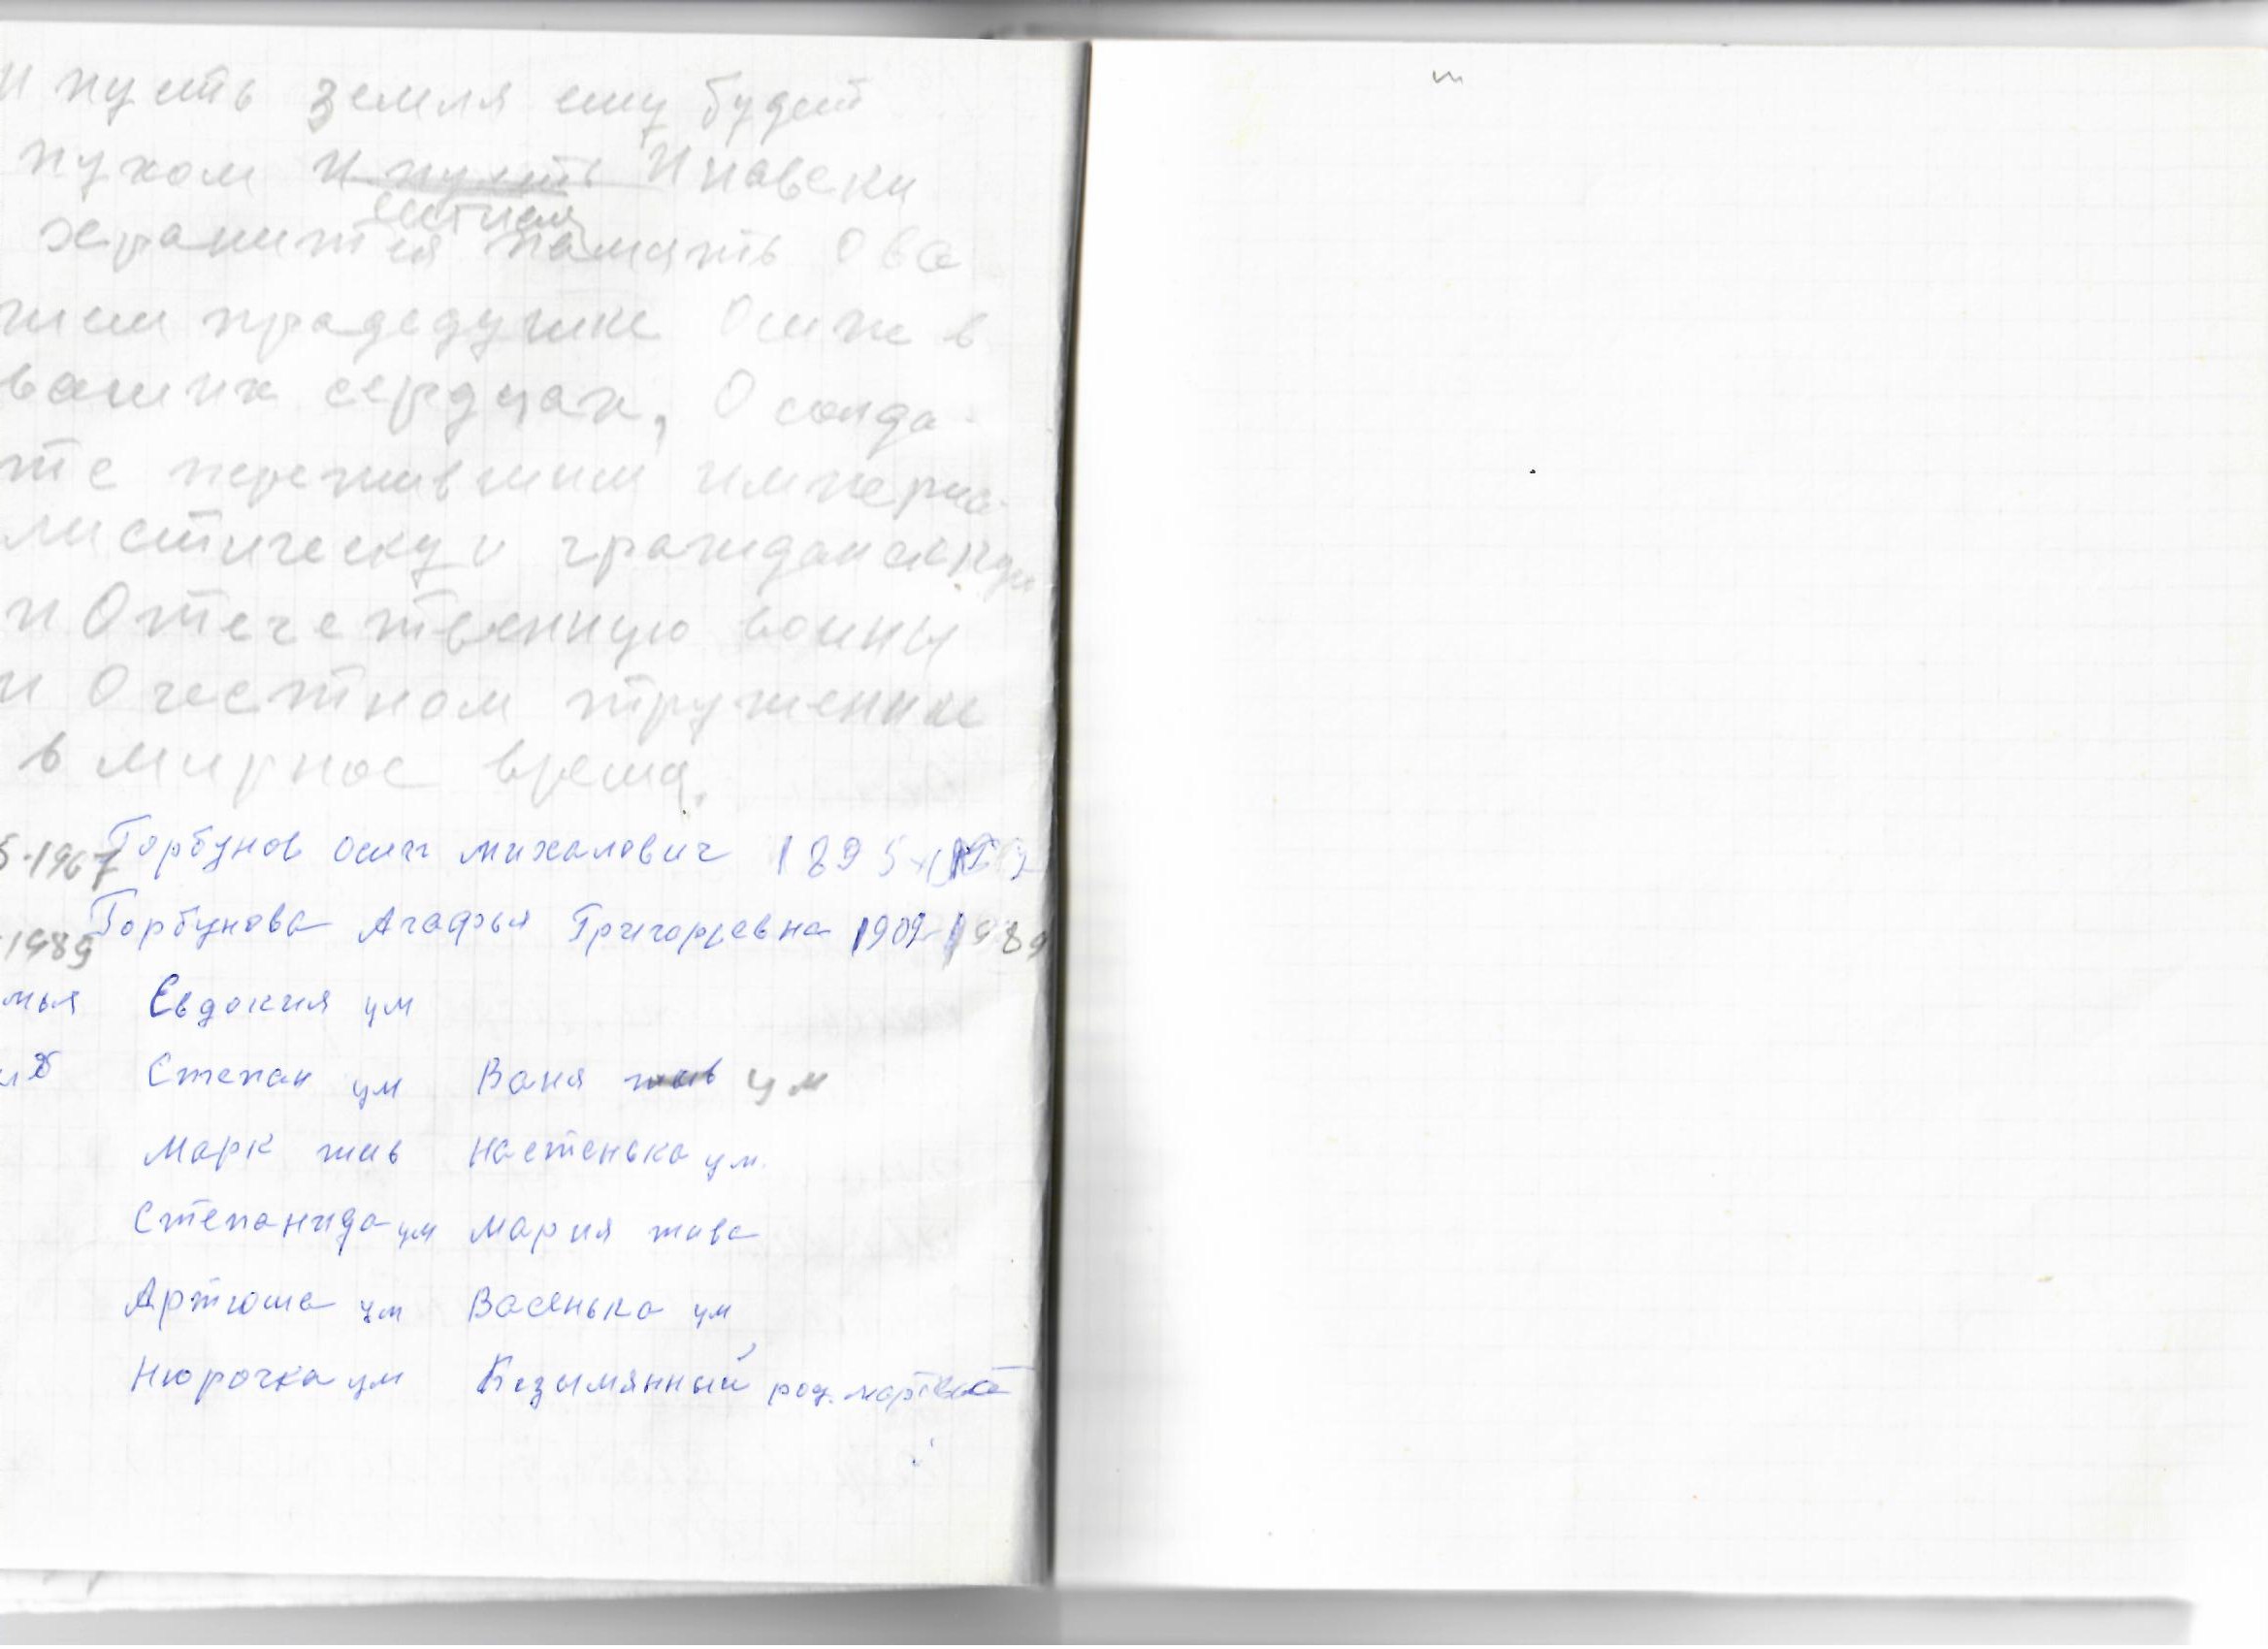 И пусть земля ему будет
пухом и пусть И навеки
хранится память о ва
шем прадедушке Осипе в
ваших сердцах, О солда-
те пережившим империа-
листическу и гражданскую
и Отечественную воины
и О честном труженике
в мирное время.
5-1967 Горбунов Осип михалович 1895
-1989 Горбунова Агафья Григорьевна 1909-1989
мья Евдокия ум
Степан ум Ваня жив ум
Марк жив Настенька ум.
Степанида ум Мария жива
Артюша ум Васенька ум
Нюрочка ум Безымянный род. мертвый